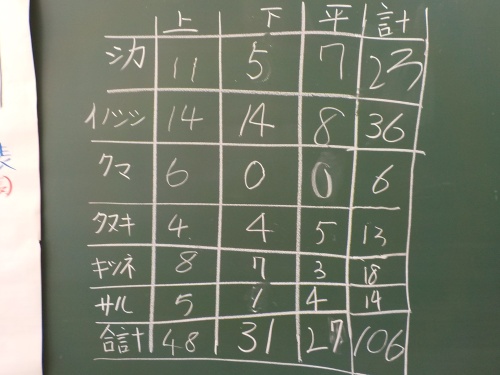 上 下 平 計
シカ 11 5 7 23
イノシシ 14 14 8 36
クマ 6 0 0 6
タヌキ 4 4 5 13
キツネ 8 7 3 18
サル 5 1 4 14
合計 48 31 27 106